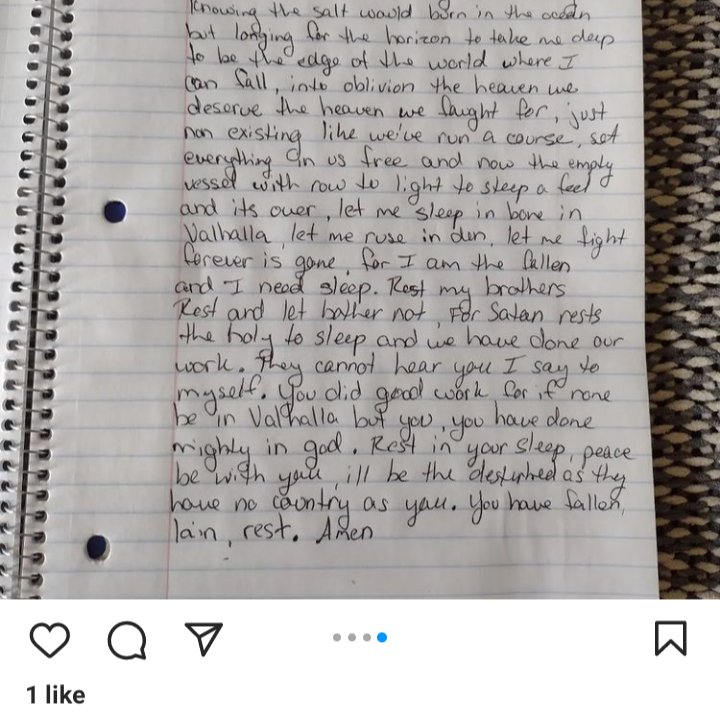 Knowing the salt would burn in the ocean
but longing for the horizon to take me deep
to be the edge of the world where I
can fall, into oblivion the heaven we
deserve the heaven we faught for, just
non existing like we've run a course, set
everything in us free and now the empty
vessel with row to light to sleep a feel
and its over, let me sleep in bone in
Valhalla, let me ruse in den, let me fight
forever is gone, for I am the fallen
and I need sleep. Rest my brothers
Rest and let bother not, For Satan rests
the holy to sleep and we have done our
work. They cannot hear you I say to
myself. You did good work for if none
be in Valhalla but you, you have done
mighly in god. Rest in your sleep, peace
be with you, ill be the as they
have no country as you. You have fallen,
lain, rest. Amen
1 like